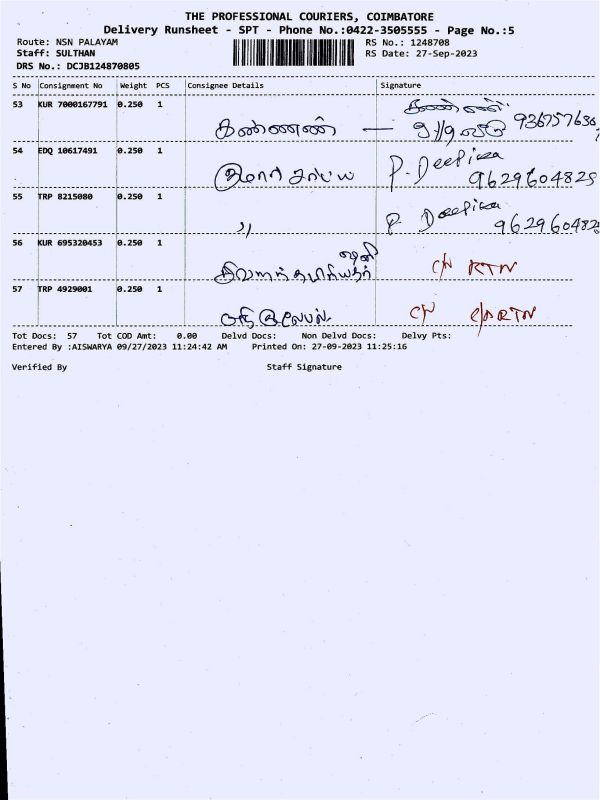 THE PROFESSIONAL COURIERS, COIMBATORE
Delivery Runsheet - SPT - Phone No.:0422-3505555 - Page No.:5
Route: NSN PALAYAM RS No.: 1248708
Staff: SULTHAN RS Date: 27-Sep-2023
DRS No.: DCJB124870805
S No Consignment No Weight PCS Consignee Details Signature
53 KUR 7000167791 0.250 1 கண்ணண் — கண்ணன்
54 EDQ 10617491 0.250 1 P. Deepika
9629604825
55 TRP 8215080 0.250 1 〃 P Deepika
9629604825
56 KUR 695320453 0.250 1 C/N RTN
57 TRP 4929001 0.250 1 C/N RTN
Tot Docs: 57 Tot COD Amt: 0.00 Delvd Docs: Non Delvd Docs: Delvy Pts:
Entered By :AISWARYA 09/27/2023 11:24:42 AM Printed On: 27-09-2023 11:25:16
Verified By Staff Signature